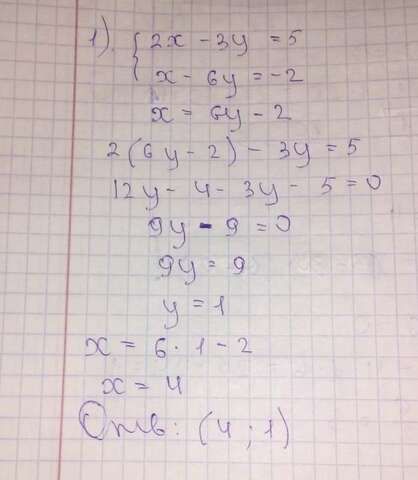 1). { 2x - 3y = 5
x - 6y = -2
x = 6y - 2
2(6y - 2) - 3y = 5
12y - 4 - 3y - 5 = 0
9y - 9 = 0
9y = 9
y = 1
x = 6 · 1 - 2
x = 4
Отв: (4 ; 1)